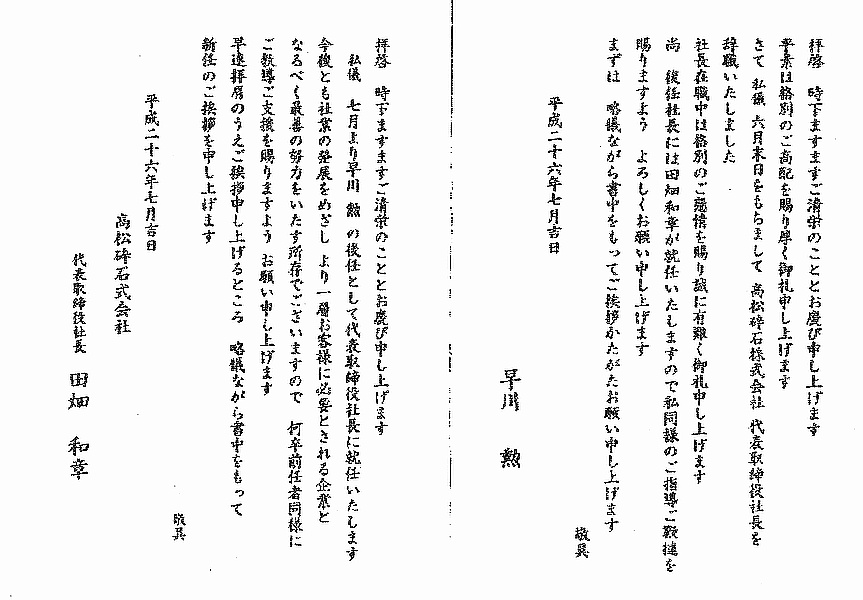 拝啓　時下ますますご清栄のこととお慶び申し上げます
平素は格別のご高配を賜り厚く御礼申し上げます
さて　私儀　六月末日をもちまして　高松砕石株式会社　代表取締役社長を
辞職いたしました
社長在職中は格別のご懇情を賜り誠に有難く御礼申し上げます
尚　後任社長には田畑和章が就任いたしますので私同様のご指導ご鞭撻を
賜りますよう　よろしくお願い申し上げます
まずは　略儀ながら書中をもってご挨拶かたがたお願い申し上げます
敬具
平成二十六年七月吉日
早川　勲
拝啓　時下ますますご清栄のこととお慶び申し上げます
私儀　七月より早川　勲　の後任として代表取締役社長に就任いたします
今後とも社業の発展をめざし　より一層お客様に必要とされる企業と
なるべく最善の努力をいたす所存でございますので　何卒前任者同様に
ご教導ご支援を賜りますよう　お願い申し上げます
早速拝眉のうえご挨拶申し上げるところ　略儀ながら書中をもって
新任のご挨拶を申し上げます
敬具
平成二十六年七月吉日
高松砕石式会社
代表取締役社長　田畑　和章